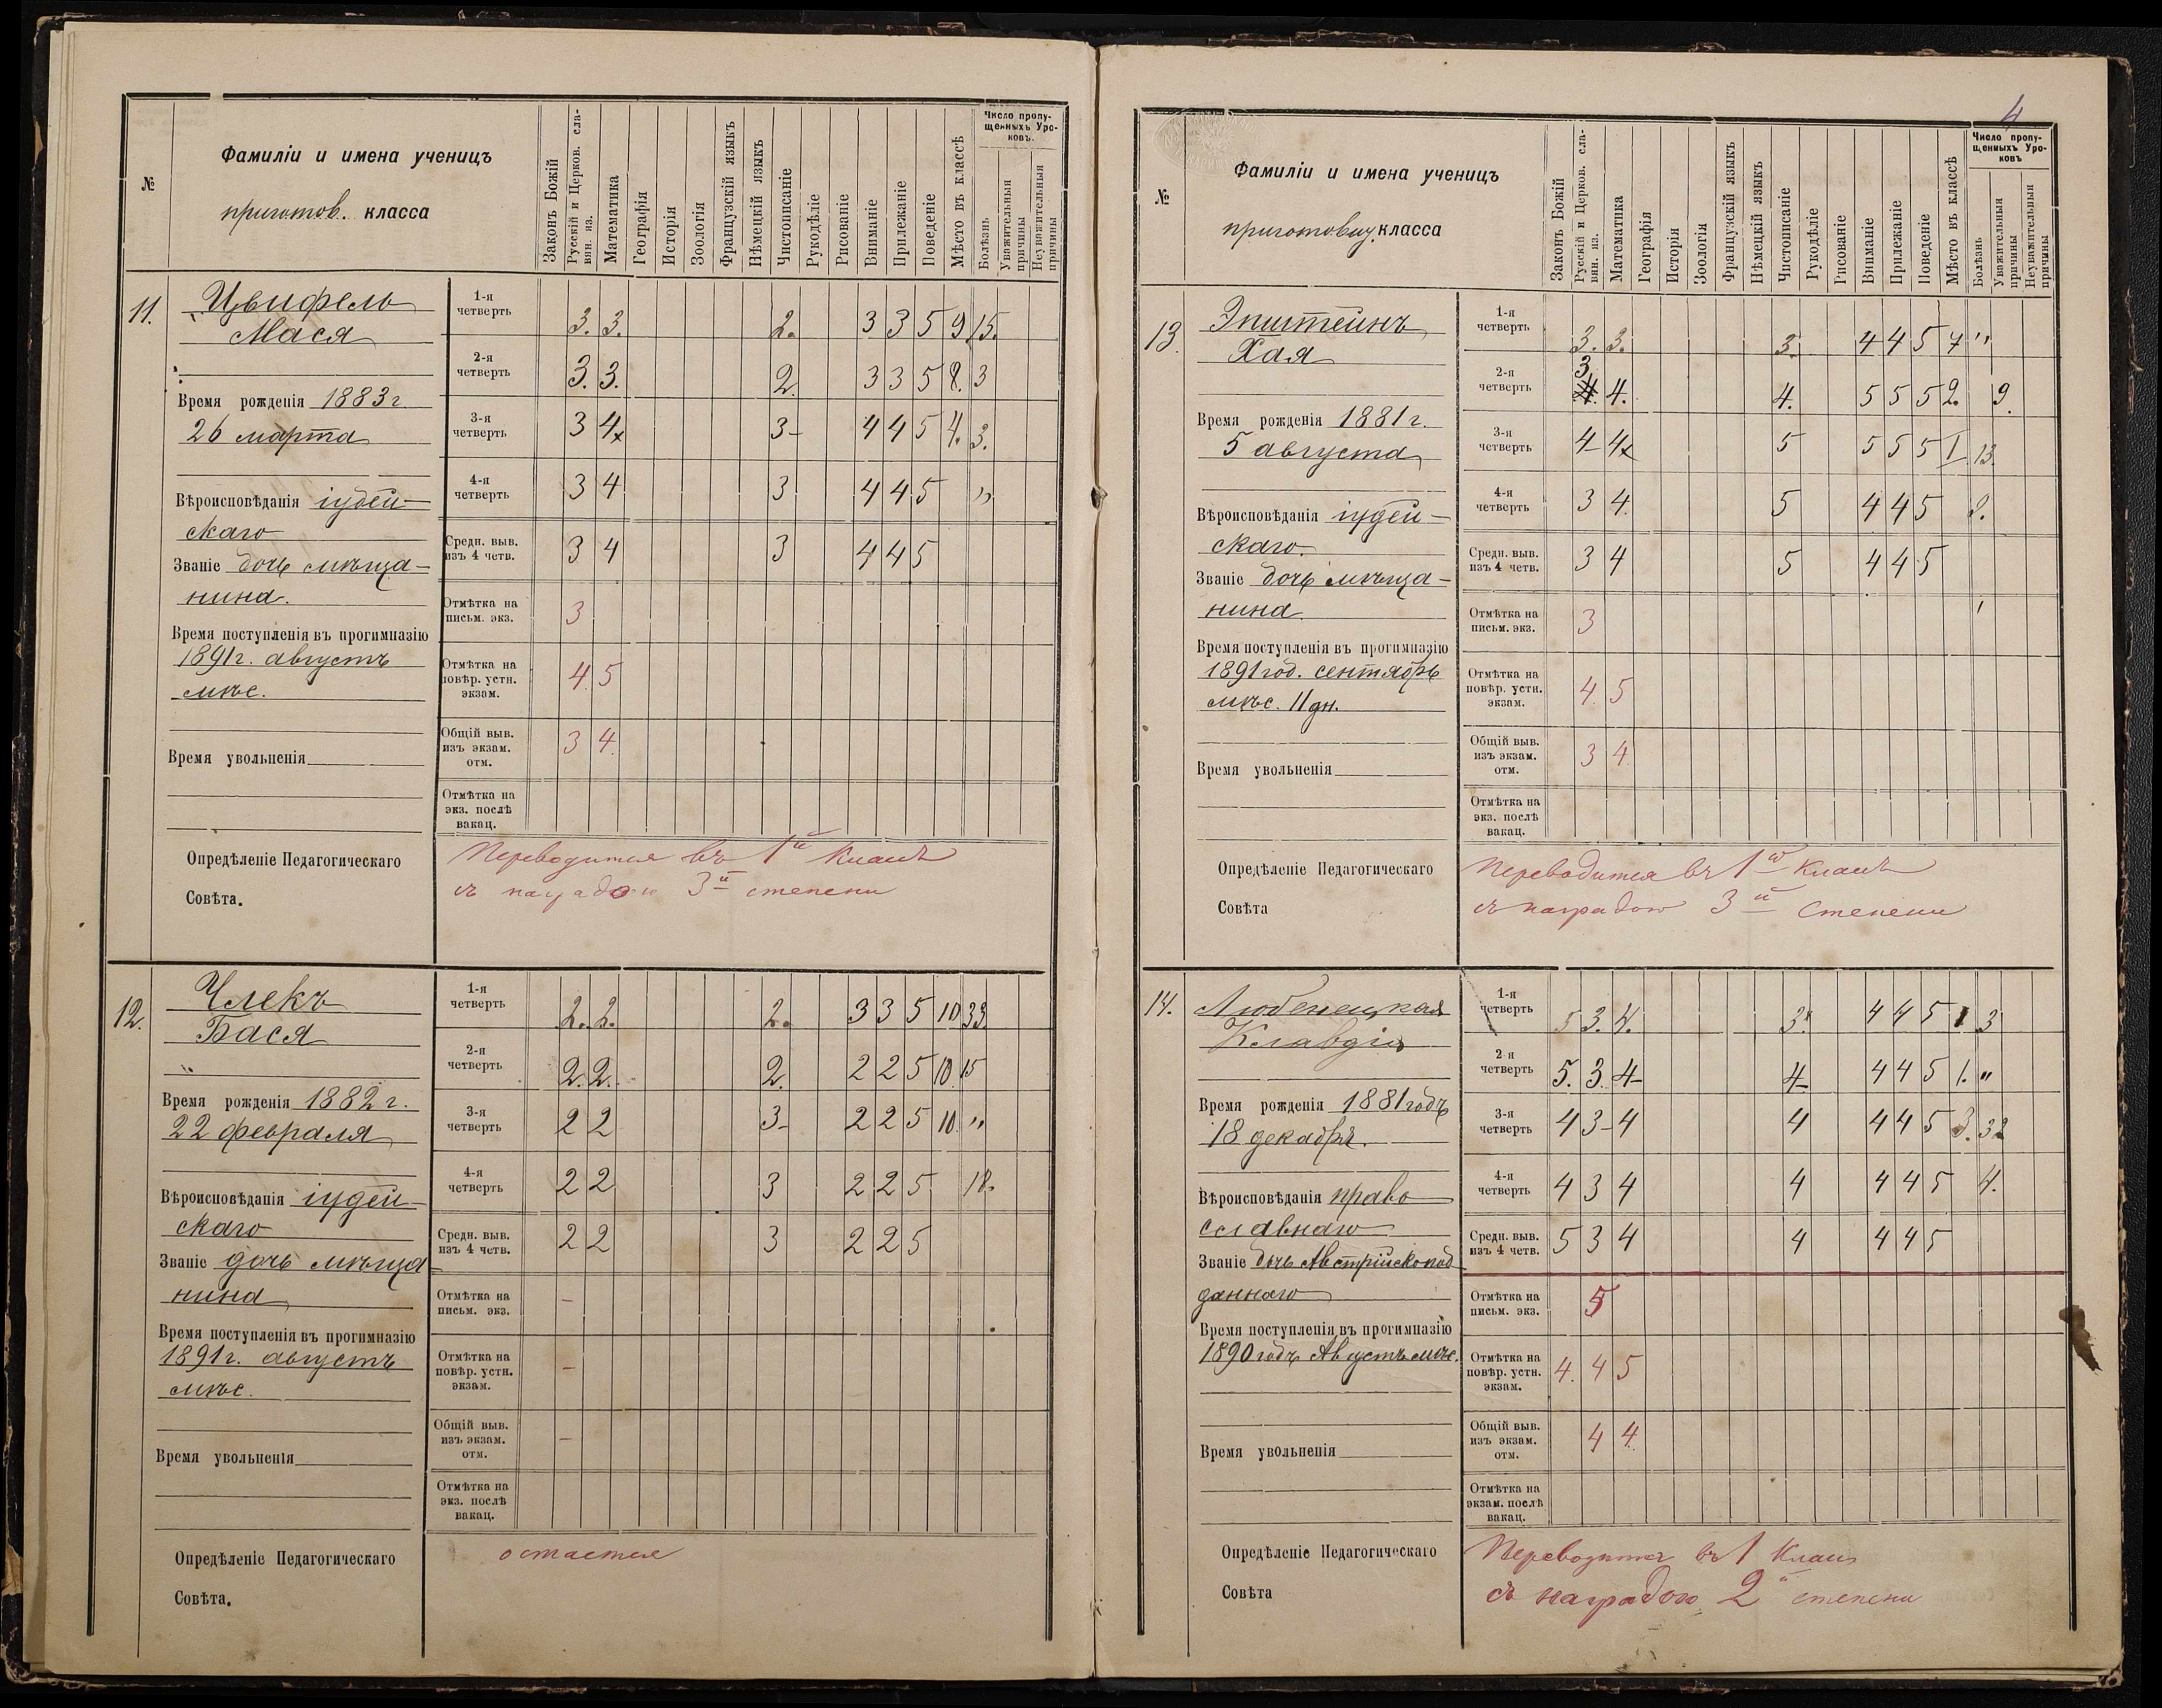 №
Фамиліи и имена ученицъ
приготов. класса
Законъ Божій
Русскій и Церков. сла-
вян. яз.
Математика
Географія
Исторія
Зоологія
Французскій языкъ
Нѣмецкій языкъ
Чистописаніе
Рукодѣліе
Рисованіе
Вниманіе
Прилежаніе
Поведеніе
Мѣсто въ классѣ
Число пропу-
щенныхъ Уро-
ковъ.
Болѣзнь
Уважительныя
причины
Неуважительныя
причины
11.
Цвифель
Мася
Время рожденія 1883 г.
26 марта
Вѣроисповѣданія іудей-
скаго
Званіе дочь мѣща-
нина.
Время поступленія въ прогимназію
1891 г. августъ
мѣс.
Время увольненія
1-я
четверть
3. 3. 2. 3 3 5 9 15.
2-я
четверть
3. 3. 2. 3 3 5 8. 3
3-я
четверть
3 4 3- 4 4 5 4. 3.
4-я
четверть
3 4 3 4 4 5 "
Средн. выв.
изъ 4 четв.
3 4 3 4 4 5
Отмѣтка на
письм. экз.
3
Отмѣтка на
повѣр. устн.
экзам.
4. 5
Общій выв.
изъ экзам.
отм.
3 4.
Отмѣтка на
экз. послѣ
вакац.
Опредѣленіе Педагогическаго
Совѣта.
Переводится въ 1й классъ
съ наградою 3й степени
12.
Члекъ
Бася
"
Время рожденія 1882 г.
22 февраля
Вѣроисповѣданія іудей-
скаго
Званіе дочь мѣща-
нина
Время поступленія въ прогимназію
1891 г. августъ
мѣс.
Время увольненія
1-я
четверть
2. 2. 2. 3 3 5 10 33
2-я
четверть
2. 2. 2. 2 2 5 10. 15
3-я
четверть
2 2 3- 2 2 5 10. "
4-я
четверть
2 2 3 2 2 5 18.
Средн. выв.
изъ 4 четв.
2 2 3 2 2 5
Отмѣтка на
письм. экз.
–
Отмѣтка на
повѣр. устн.
экзам.
–
Общій выв.
изъ экзам.
отм.
–
Отмѣтка на
экз. послѣ
вакац.
Опредѣленіе Педагогическаго
Совѣта.
остается
4
№
Фамиліи и имена ученицъ
приготовит. класса
Законъ Божій
Русскій и Церков. сла-
вян. яз.
Математика
Географія
Исторія
Зоологія
Французскій языкъ
Нѣмецкій языкъ
Чистописаніе
Рукодѣліе
Рисованіе
Вниманіе
Прилежаніе
Поведеніе
Мѣсто въ классѣ
Число пропу-
щенныхъ Уро-
ковъ
Болѣзнь
Уважительныя
причины
Неуважительныя
причины
13.
Эпштейнъ
Хая
Время рожденія 1881 г.
5 августа
Вѣроисповѣданія іудей-
скаго.
Званіе дочь мѣща-
нина
Время поступленія въ прогимназію
1891 год. сентябрь
мѣс. 11 дн.
Время увольненія
1-я
четверть
3. 3. 3. 4 4 5 7 "
2-я
четверть
3 4. 4. 5 5 5 2. 9.
3-я
четверть
4- 4 5 5 5 5 1 13.
4-я
четверть
3 4. 5 4 4 5 2.
Средн. выв.
изъ 4 четв.
3 4 5 4 4 5
Отмѣтка на
письм. экз.
3
Отмѣтка на
повѣр. устн.
экзам.
4. 5
Общій выв.
изъ экзам.
отм.
3 4
Отмѣтка на
экз. послѣ
вакац.
Опредѣленіе Педагогическаго
Совѣта
Переводится въ 1й классъ
съ наградою 3й степени
14.
Любенецкая
Клавдія
Время рожденія 1881 годъ
18 декабря.
Вѣроисповѣданія право
славнаго
Званіе дочь Австрійскопод
даннаго
Время поступленія въ прогимназію
1890 годъ Августъ мѣс.
Время увольненія
1-я
четверть
5 3. 4. 3. 4 4 5 1 3
2-я
четверть
5. 3. 4- 4- 4 4 5 1. "
3-я
четверть
4 3- 4 4 4 4 5 3. 32
4-я
четверть
4 3 4 4 4 4 5 4.
Средн. выв.
изъ 4 четв.
5 3 4 4 4 4 5
Отмѣтка на
письм. экз.
5
Отмѣтка на
повѣр. устн.
экзам.
4. 4 5
Общій выв.
изъ экзам.
отм.
4 4.
Отмѣтка на
экзам. послѣ
вакац.
Опредѣленіе Педагогическаго
Совѣта
Переводится въ 1 классъ
съ наградою 2й степени